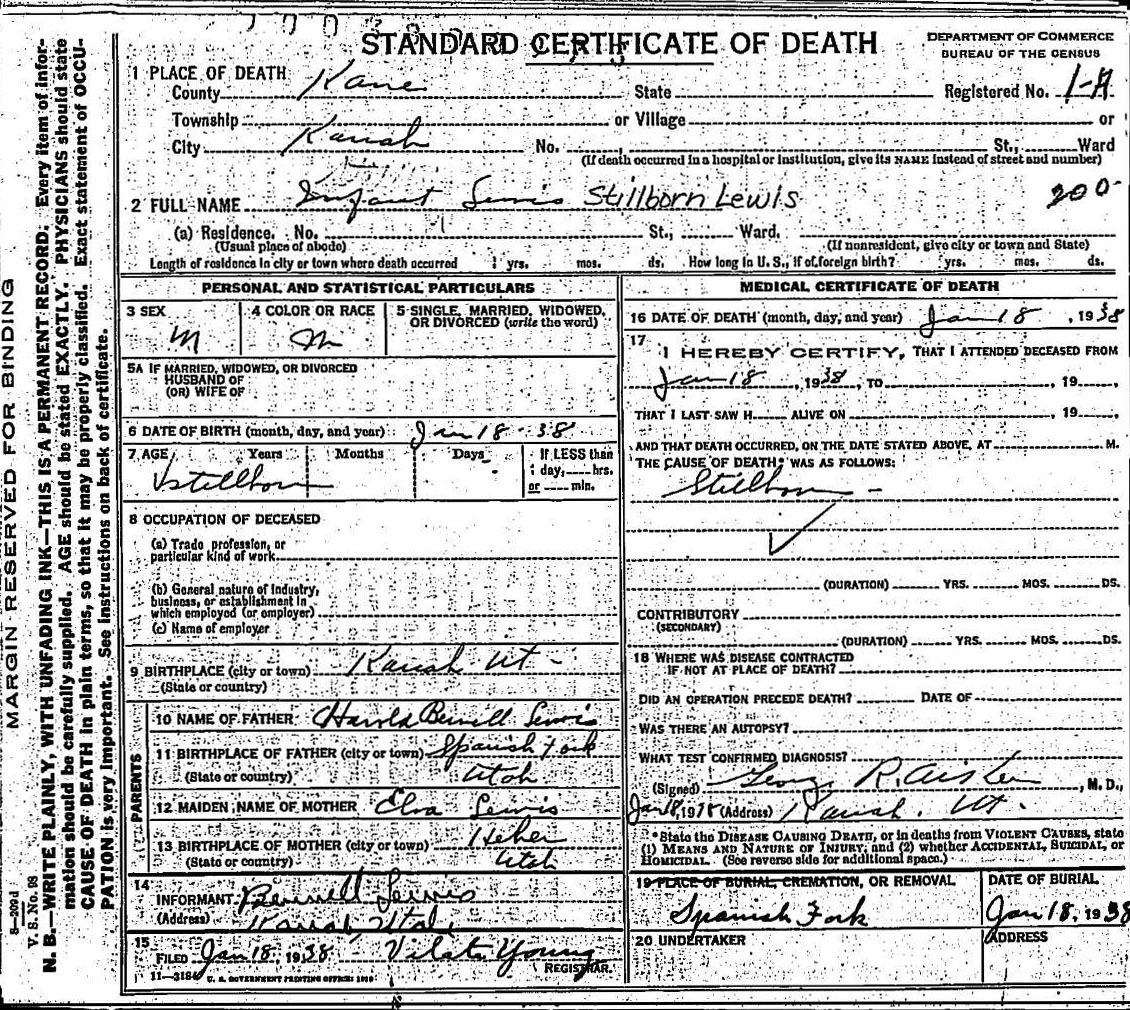 STANDARD CERTIFICATE OF DEATH
DEPARTMENT OF COMMERCE
BUREAU OF THE CENSUS
1 PLACE OF DEATH
County Kane State Registered No. 1-A
Township or Village or
City Kanab No. St., Ward
(If death occurred in a hospital or institution, give its NAME instead of street and number)
2 FULL NAME Infant Lewis Stillborn Lewis 200
(a) Residence. No. St., Ward.
(Usual place of abode) (If nonresident, give city or town and State)
Length of residence in city or town where death occurred yrs. mos. ds. How long in U. S., if of foreign birth? yrs. mos. ds.
PERSONAL AND STATISTICAL PARTICULARS
3 SEX 4 COLOR OR RACE 5 SINGLE, MARRIED, WIDOWED,
OR DIVORCED (write the word)
M
5A IF MARRIED, WIDOWED, OR DIVORCED
HUSBAND OF
(OR) WIFE OF
6 DATE OF BIRTH (month, day, and year) Jan 18 - 38
7 AGE Years Months Days If LESS than
1 day, hrs.
or min.
stillborn
8 OCCUPATION OF DECEASED
(a) Trade profession, or
particular kind of work
(b) General nature of Industry,
business, or establishment in
which employed (or employer)
(c) Name of employer
9 BIRTHPLACE (city or town) Kanab Ut -
(State or country)
PARENTS
10 NAME OF FATHER Harold Bennell Lewis
11 BIRTHPLACE OF FATHER (city or town) Spanish Fork
(State or country) Utah
12 MAIDEN NAME OF MOTHER Elva Lewis
13 BIRTHPLACE OF MOTHER (city or town) Heber
(State or country) Utah
14
INFORMANT Bennell Lewis
(Address) Kanab, Utah
15
FILED Jan 18, 1938 - Young
REGISTRAR.
11—3184 U. S. GOVERNMENT PRINTING OFFICE:
MEDICAL CERTIFICATE OF DEATH
16 DATE OF DEATH (month, day, and year) Jan 18, 1938
17
I HEREBY CERTIFY, THAT I ATTENDED DECEASED FROM
Jan 18, 1938, TO , 19 ,
THAT I LAST SAW H ALIVE ON , 19 ,
AND THAT DEATH OCCURRED, ON THE DATE STATED ABOVE, AT M.
THE CAUSE OF DEATH* WAS AS FOLLOWS:
Stillborn -
(DURATION) YRS. MOS. DS.
CONTRIBUTORY
(SECONDARY)
(DURATION) YRS. MOS. DS.
18 WHERE WAS DISEASE CONTRACTED
IF NOT AT PLACE OF DEATH?
DID AN OPERATION PRECEDE DEATH? DATE OF
WAS THERE AN AUTOPSY?
WHAT TEST CONFIRMED DIAGNOSIS?
(Signed) George R. Aiken, M. D.,
Jan 18, 1938 (Address) Kanab. Ut.
*State the DISEASE CAUSING DEATH, or in deaths from VIOLENT CAUSES, state
(1) MEANS AND NATURE OF INJURY; and (2) whether ACCIDENTAL, SUICIDAL, or
HOMICIDAL. (See reverse side for additional space.)
19 PLACE OF BURIAL, CREMATION, OR REMOVAL DATE OF BURIAL
Spanish Fork Jan 18, 1938
20 UNDERTAKER ADDRESS
MARGIN RESERVED FOR BINDING
V. S. No. 98
N. B.—WRITE PLAINLY, WITH UNFADING INK—THIS IS A PERMANENT RECORD. Every item of infor-
mation should be carefully supplied. AGE should be stated EXACTLY. PHYSICIANS should state
CAUSE OF DEATH in plain terms, so that it may be properly classified. Exact statement of OCCU-
PATION is very important. See instructions on back of certificate.